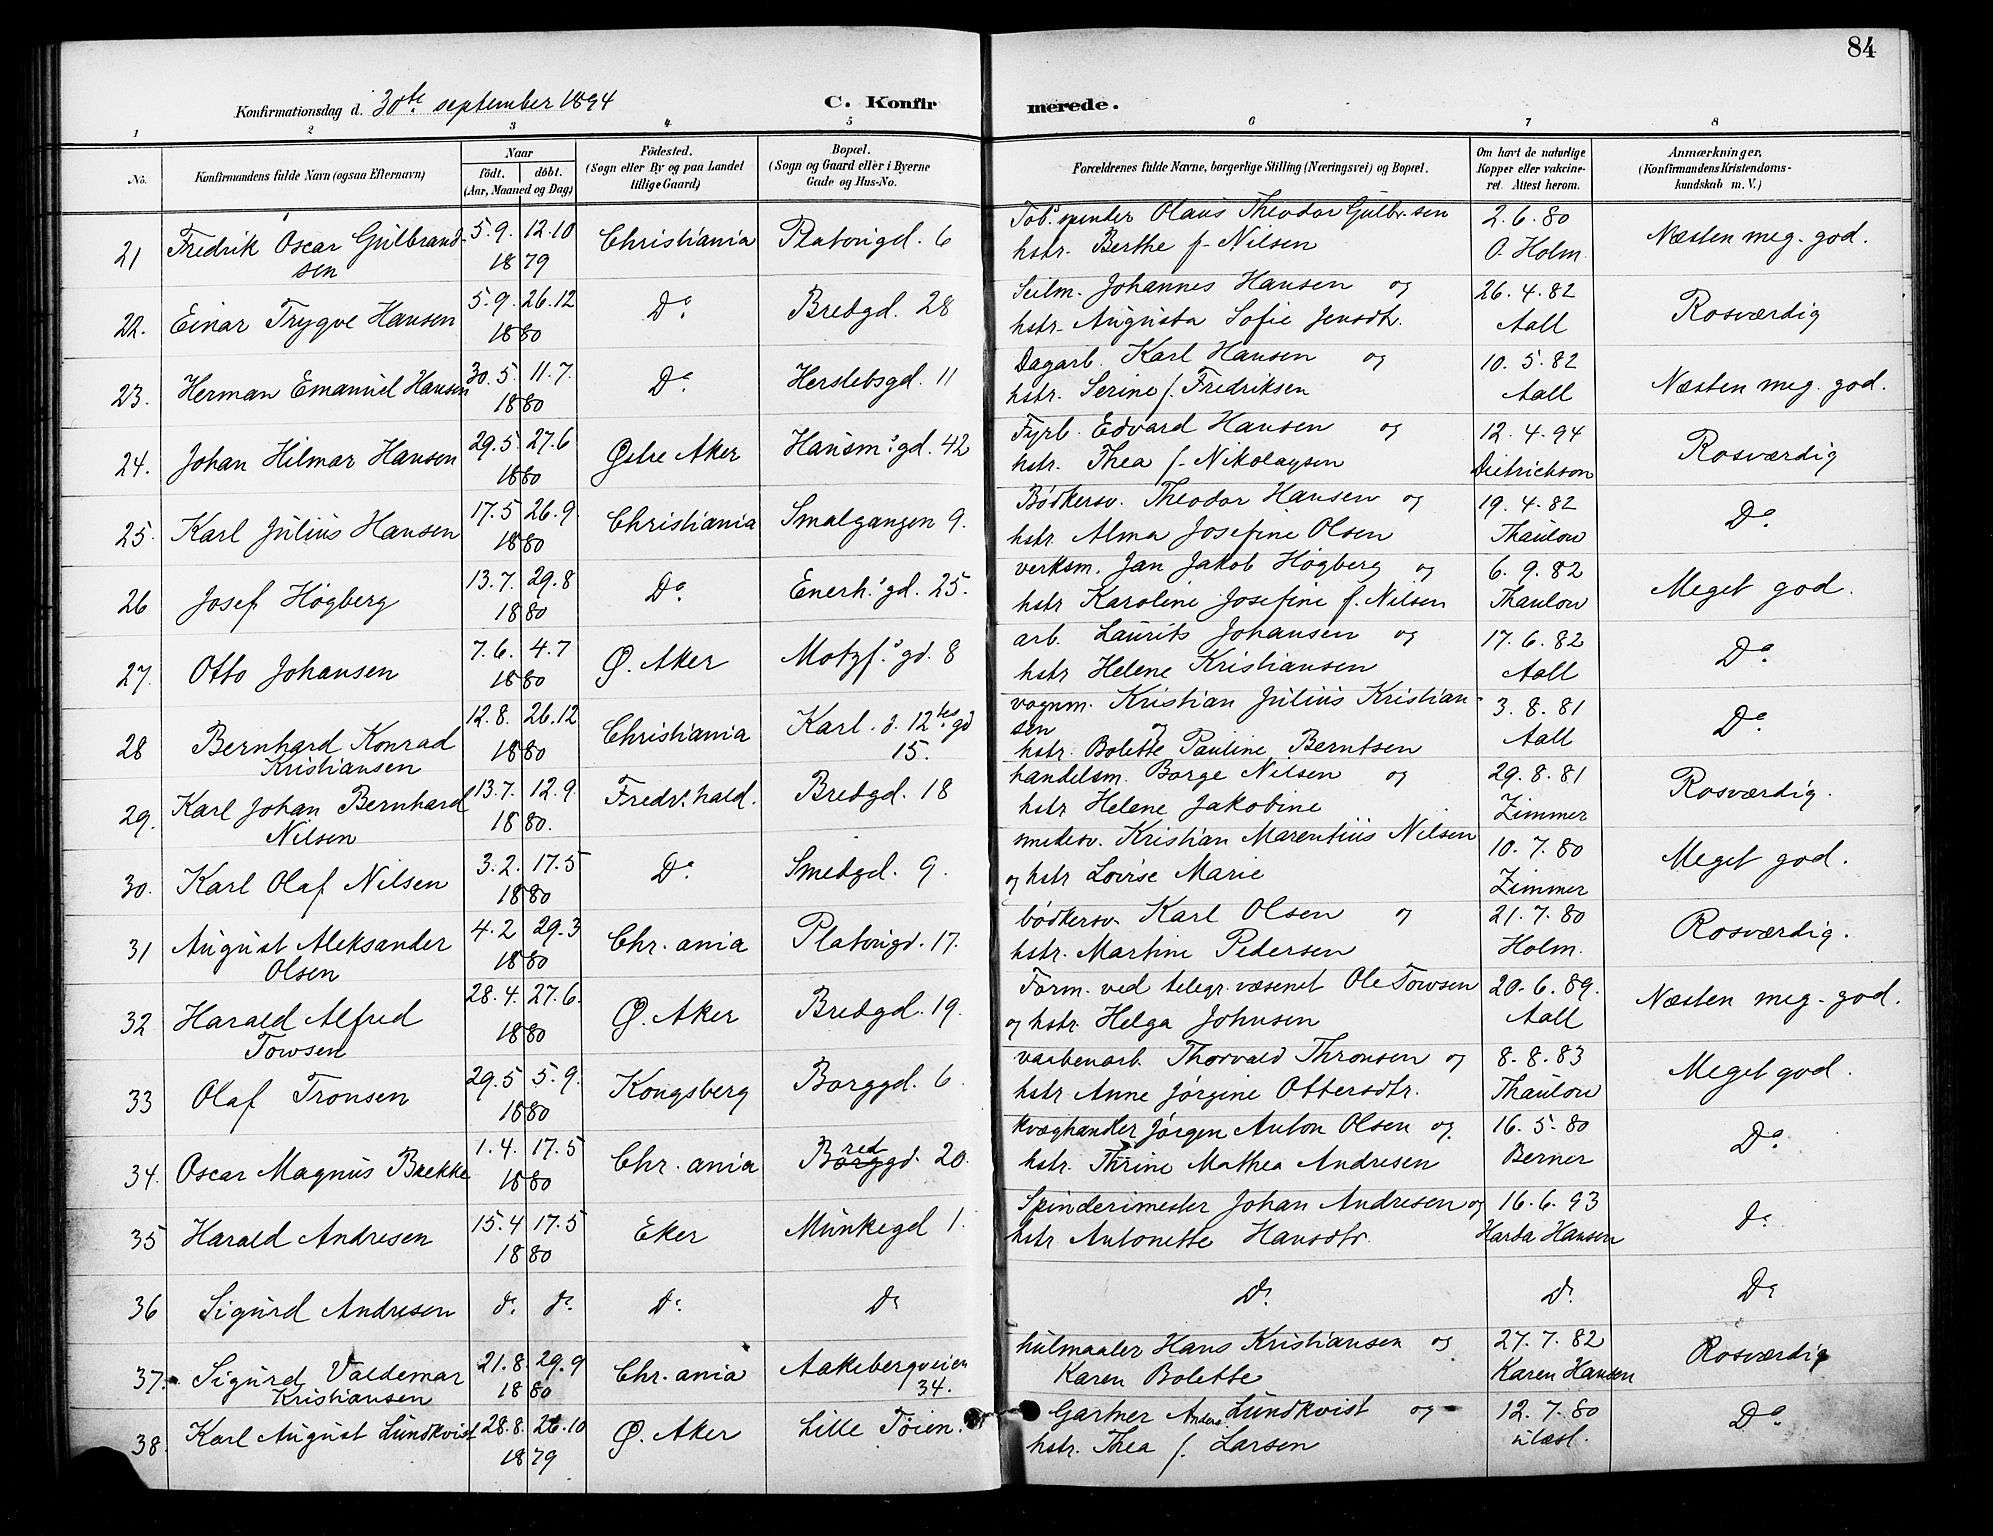 84
Konfirmationsdag d. 30te september 1894 C. Konfirmerede.
1 2 3 4 5 6 7 8
No. Konfirmandens fulde Navn (ogsaa Efternavn) Naar født. døbt. (Aar, Maaned og Dag) Fødested. (Sogn eller By og paa Landet tillige Gaard) Bopæl. (Sogn og Gaard eller i Byerne Gade og Hus-No. Forældrenes fulde Navne, borgerlige Stilling (Næringsvei) og Bopæl. Om havt de naturlige Kopper eller vakcineret. Attest herom. Anmærkninger, (Konfirmandens Kristendomskundskab m. V.)
21 Fredrik Oscar Gulbrandsen 5.9. 12.10 1879 Christiania Platougd. 6 Tob.spinder Olaus Theodor Gulbr.sen
hstr. Berthe f. Nilsen 2.6.80 O. Holm Næsten meg. god.
22. Einar Trygve Hansen 5.9. 26.12 1880 Do. Bredgd. 28 Seilm. Johannes Hansen og
hstr. Augusta Sofie Jensdtr. 26.4.82 Aall Rosværdig
23. Herman Emanuel Hansen 30.5. 11.7. 1880 Do. Herslebsgd. 11 Dagarb. Karl Hansen og
hstr. Serine f. Fredriksen 10.5.82 Aall Næsten meg. god.
24. Johan Hilmar Hansen 29.5 27.6 1880 Østre Aker Hausm.s gd. 42 Fyrb. Edvard Hansen og
hstr. Thea f. Nikolaysen 12.4.94 Dietrichson Rosværdig
25. Karl Julius Hansen 17.5 26.9. 1880 Christiania Smalgangen 9. Bødkersv. Theodor Hansen og
hstr. Alma Josefine Olsen 19.4.82 Thaulow Do.
26 Josef Høgberg 13.7. 29.8 1880 Do. Enerh.s gd. 25. verksm. Jan Jakob Høgberg og
hstr Karoline Josefine f. Nilsen 6.9.82 Thaulow Meget god.
27. Otto Johansen 7.6. 4.7 1880 Ø. Aker Motzf.s gd. 8 arb. Laurits Johansen og
hstr Helene Kristiansen 17.6.82 Aall Do.
28 Bernhard Konrad Kristiansen 12.8. 26.12 1880 Christiania Karl d. 12tes gd 15. vognm. Kristian Julius Kristiansen og
hstr. Bolette Pauline Berntsen 3.8.81 Aall Do
29. Karl Johan Bernhard Nilsen 13.7. 12.9. 1880. Fredr.hald. Bredgd. 18 handelsm. Børge Nilsen og
hstr Helene Jakobine 29.8.81 Zimmer Rosværdig.
30. Karl Olaf Nilsen 3.2. 17.5 1880 Do. Smedgd. 9. smedsv. Kristian Marentius Nilsen
og hstr Lovise Marie 10.7.80 Zimmer Meget god.
31 August Aleksander Olsen 4.2 29.3 1880 Chr.ania Platougd. 17. bødkersv. Karl Olsen og
hstr. Martine Pedersen 21.7.80 Holm. Rosværdig.
32 Harald Alfred Towsen 28.4. 27.6. 1880 Ø. Aker Bredgd. 19. Form. ved telegr.væsenet Ole Towsen
og hstr. Helga Johnsen 20.6.89. Aall Næsten meg. god.
33 Olaf Tronsen 29.5 5.9. 1880 Kongsberg Borggd. 6. vaabenarb. Thorvald Thronsen og
hstr Anne Jørgine Ottersdtr. 8.8.83 Thaulow Meget god.
34. Oscar Magnus Brekke 1.4. 17.5 1880 Chr.ania Borggd. red 20. kvæghandler Jørgen Anton Olsen og
hstr. Thrine Mathea Andresen 16.5.80 Berner Do.
35 Harald Andresen 15.4 17.5 1880 Eker Munkegd 1. Spinderimester Johan Andresen og
hstr Antonette Hansdtr. 16.6.93 Harda Hansen do
36 Sigurd Andresen do. do. Do. Do Do. Do. Do
37. Sigurd Valdemar Kristiansen 21.8. 29.9 1880 Chr.ania Aakebergveien 34. hulmaaler Hans Kristiansen og
Karen Bolette 27.7.82 Karen Hansen Rosværdig
38. Karl August Lundkvist 28.8. 26.10 1879 Ø. Aker Lille Tøien. Gartner Anders Lundkvist og
hstr. Thea f. Larsen 12.7.80 Do.